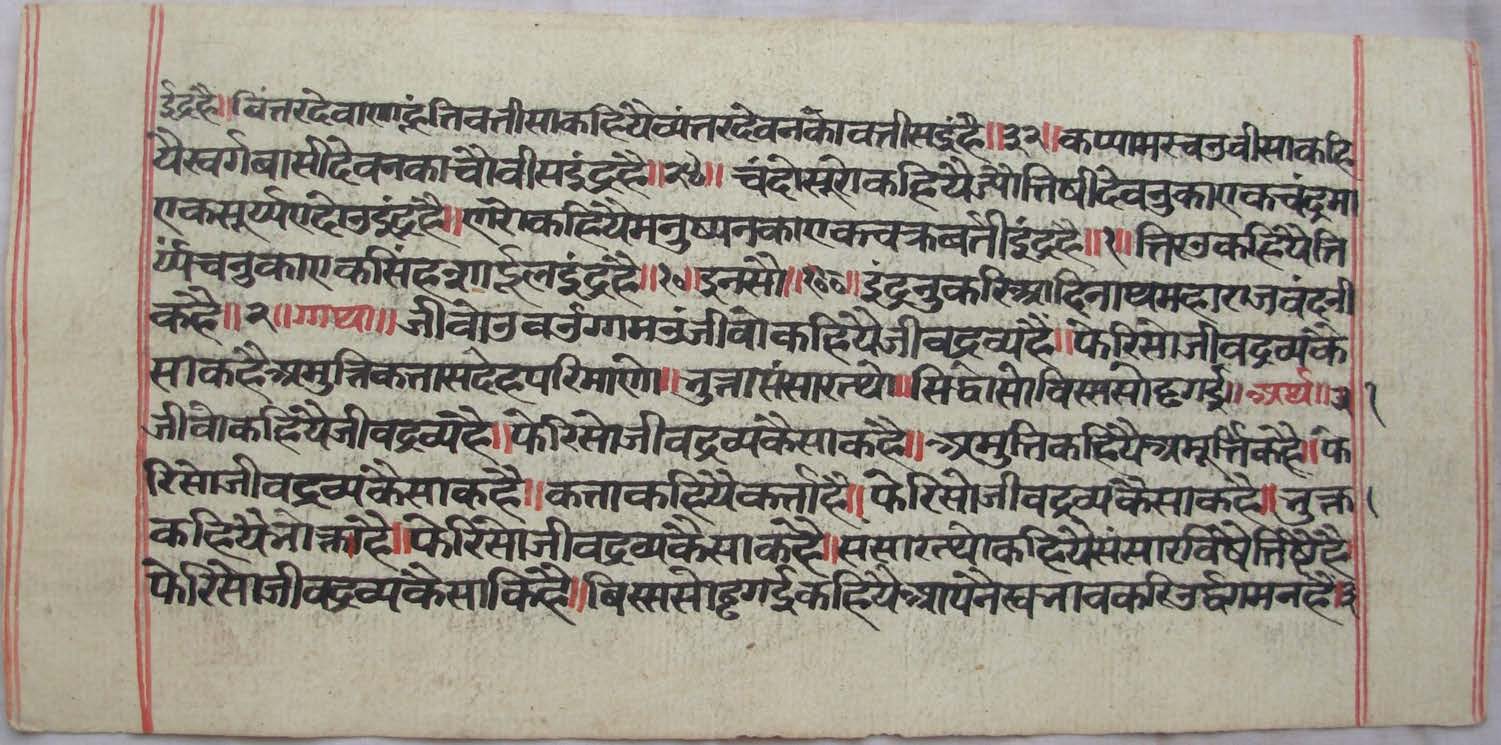 ईंद्रहै॥ विंत्तरदेवाणहूंत्तिवत्तीसाकहियैव्यंत्तरदेवनकेंवत्तीसइंद्रहै॥३२॥कप्पामरचउवीसाकहि
यैस्वर्गबासीदेवनकाचौवीसइंद्रहै॥२४॥ चंदोसूरोकहियैज्योत्तिषीदेवनुकाएकचंद्रमा
एकसूर्य्यएदोनुइंद्रहै॥ णरोकहियैमनुष्यनकाएकचक्रबर्त्तीइंद्रहै॥१॥त्तिरउकहियैत्ति
र्य्यंचनुकाएकसिंहशार्द्दूलइंद्रहै॥१॥इनसौ॥१००॥इंद्रनुकरिआदिनाथमहाराजवंदनी
कहै॥२॥गाथा॥जीवोउवउंग्गामउंजीवोकहियैजीवद्रव्यहै॥फेरिसोजीवद्रव्यकै
साकहैअमुत्तिकत्तासदेहपरिमाणो॥भुत्तासंसारत्थो॥सिद्धोसोविस्ससोड्ढगई॥अर्थ॥३
जीवोकहियैजीवद्रव्यहै॥फेरिसोजीवद्रव्यकैसाकहै॥अमुत्तिकहियैअमूर्त्तिकहै॥फे
रिसोजीवद्रव्यकैसाकहै॥कत्ताकहियैकर्त्ताहै॥फेरिसोजीवद्रव्यकैसाकहै॥भुक्त
कहियैभोक्ताहै॥फेरिसोजीवद्रव्यकैसाकहै॥संसारत्थोकहियैसंसारविषैत्तिष्टैहै
फेरिसोजीवद्रव्यकैसाकिहै॥बिस्ससोड्ढगईकहियैआपनैस्वभावकरिउर्द्धगमनहै॥३